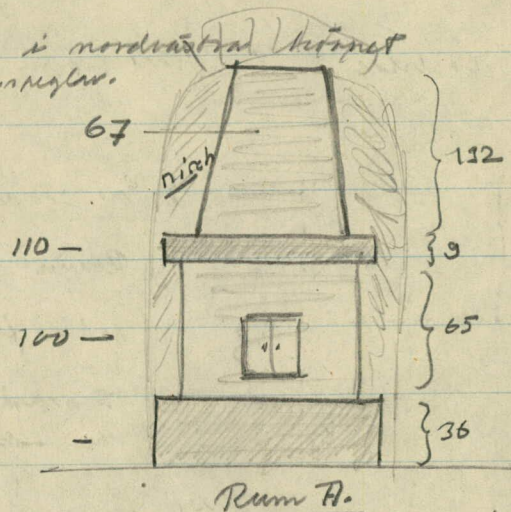 i nordvästra hörnet
67
nisch
192
110 —
9
100 —
65
—
36
Rum A.